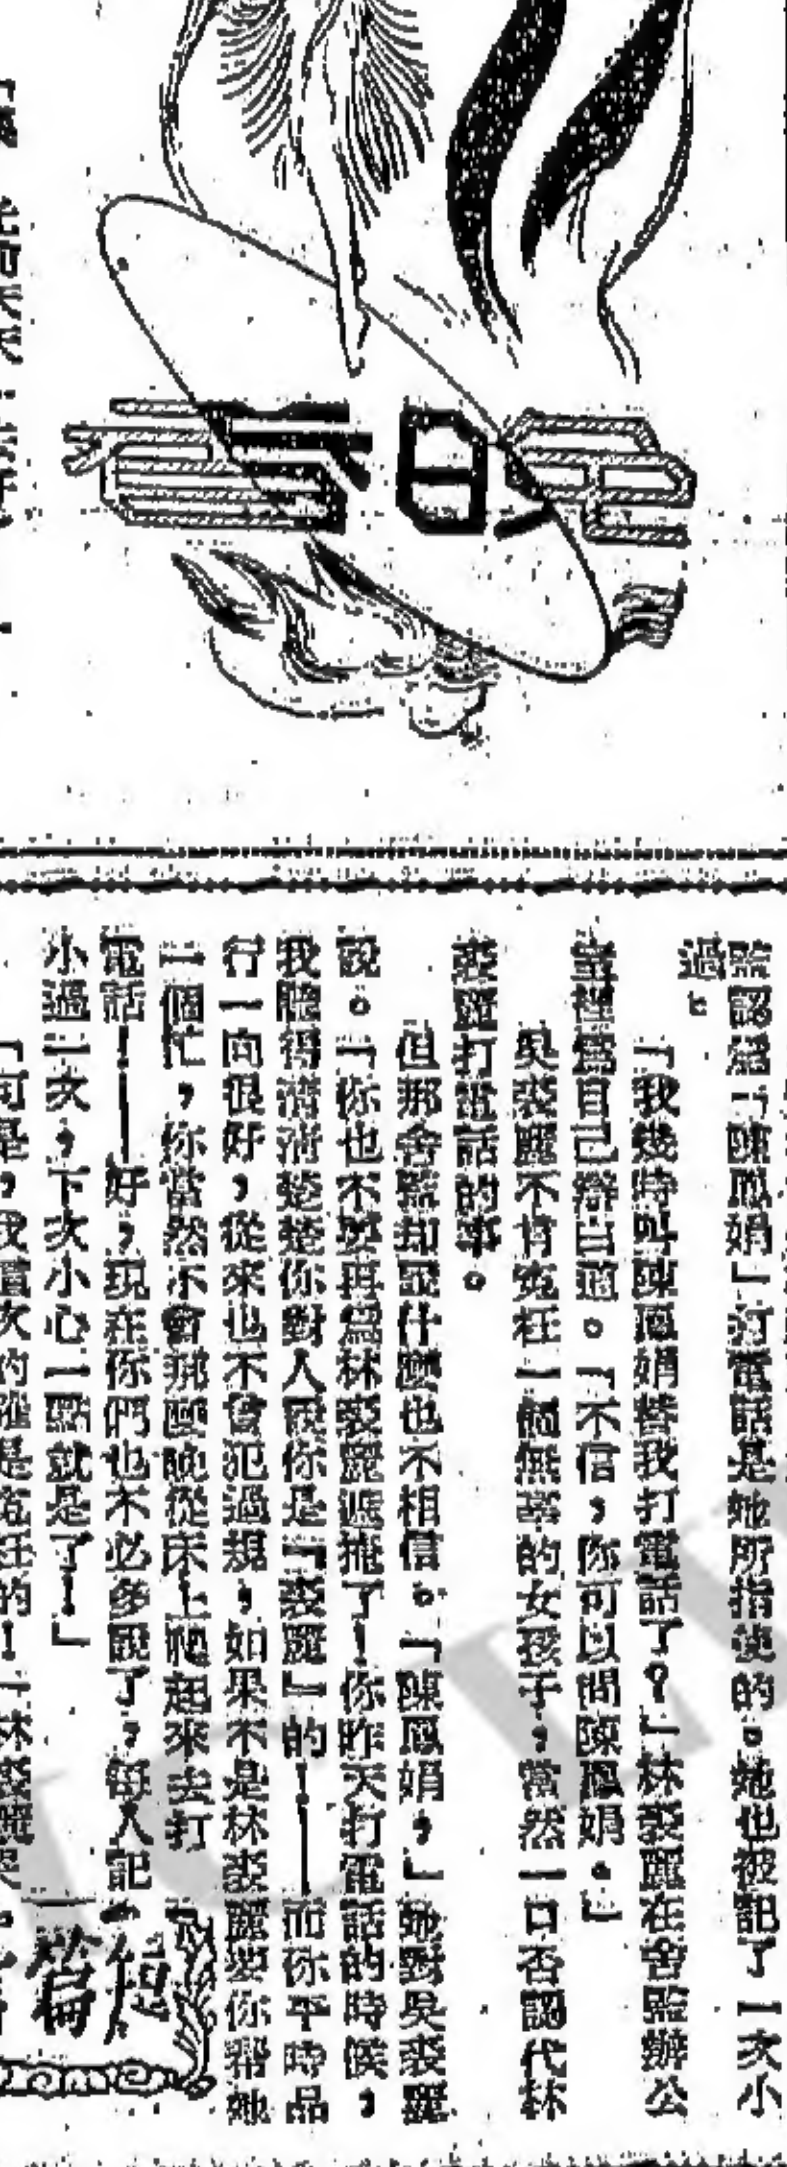 監認為「陳鳳娟」打電話是她所指使的。她也被記了一次小
過。
「我幾時叫陳鳳娟替我打電話了?」林裘麗在舍監辦公
室裡為自己辯白道。「不信,你可以問陳鳳娟。」
吳裘麗不肯寃枉一個無辜的女孩子,當然一口否認代林
裘麗打電話的事。
但那舍監却說什麼也不相信。「陳鳳娟,」她對吳裘麗
說。「你也不必再為林裘麗遮掩了!你昨天打電話的時候,
我聽得清清楚楚你對人說你是「裘麗」的——而你平時品
行一向很好,從來也不曾犯過規,如果不是林裘麗要你幫她
一個忙,你當然不會那麼晚從床上爬起來去打
電話——好,現在你們也不必多說了,每人記
小過一次,下次小心一點就是了!」
「可是,我這次的確是寃枉的!」林裘麗哭
短
篇